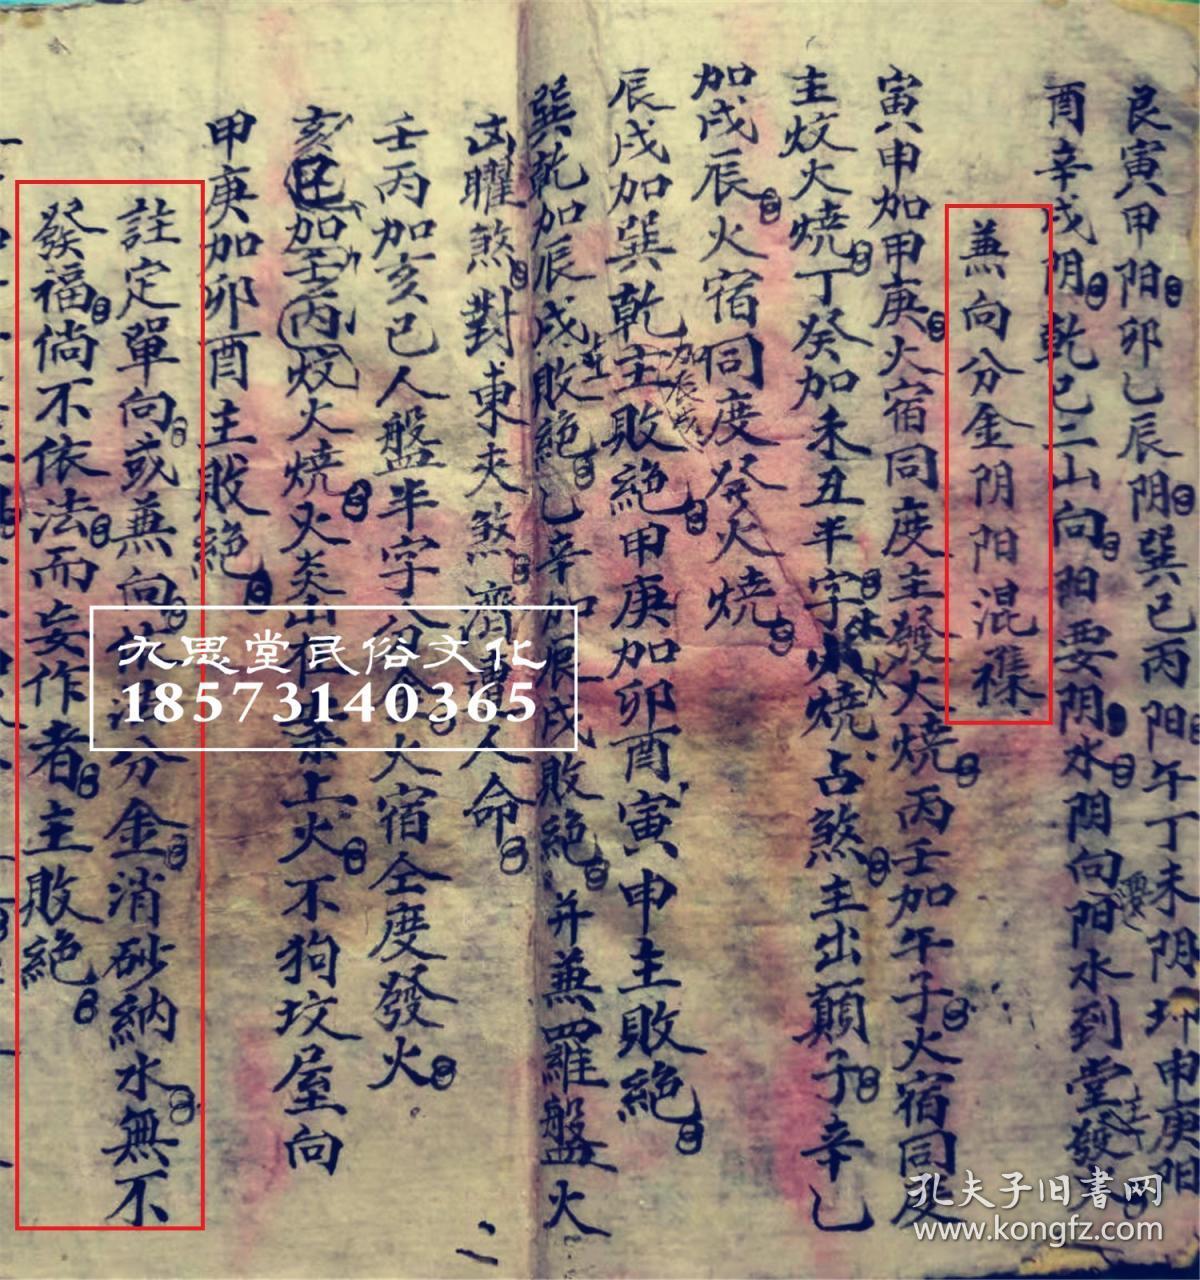 艮寅甲阳卯乙辰阴巽巳丙阳午丁未阴坤申庚阳
酉辛戌阴乾巳二山向阳要阴水阴向阳水到堂發
要
主
兼向分金阴阳混襍
寅申加甲庚火宿同度主發火燒丙壬加午子火宿同度
主炆火燒丁癸加未丑羊字火燒占煞主出顛子辛乙
加戌辰火宿同度發火燒
加辰戌
辰戌加巽乾主敗絕甲庚加卯酉寅申主敗絕
巽乾加辰戌敗絕乙辛加辰戌敗絕并兼羅盤火
凶曜煞對東夾煞 人命
壬丙加亥巳人盤半字 火宿仝度發火
亥巳加壬丙炆火燒火炎 土火不狗坟屋向
甲庚加卯酉主敗絕
註定單向或兼向 分金消砂納水無不
發福倘不依法而妄作者主敗絕
九思堂民俗文化
18573140365
孔夫子旧書网
www.kongfz.com